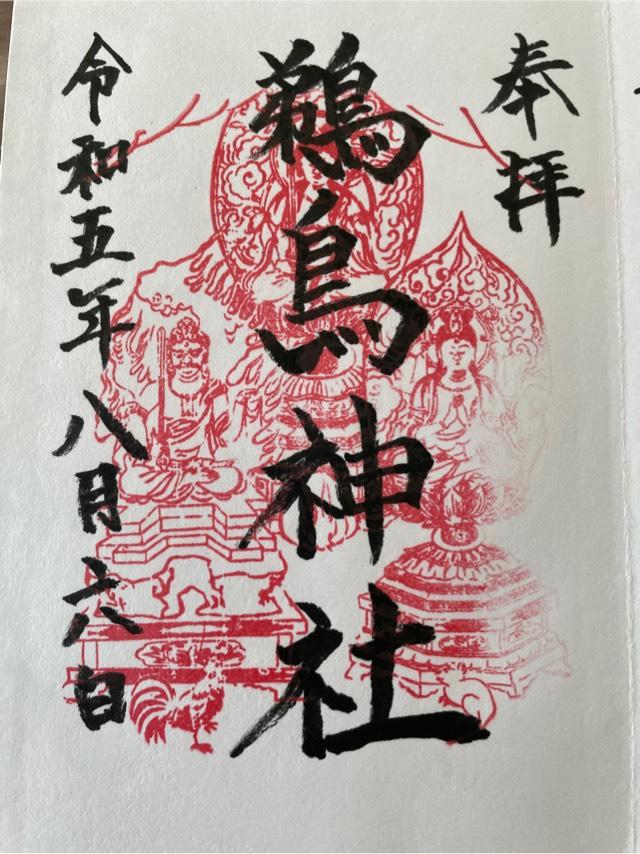 奉拝
鵜鳥神社
令和五年八月六日